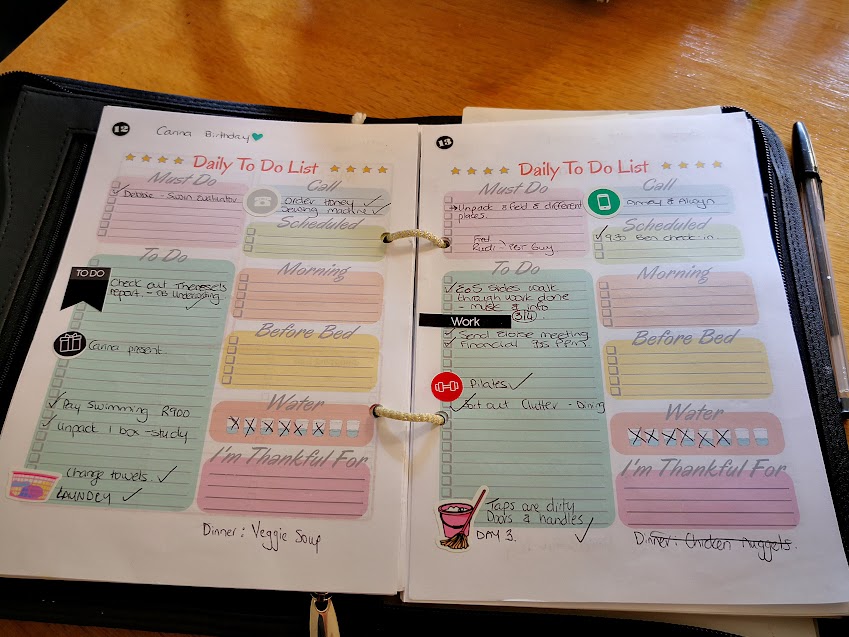 12
Canna Birthday
Daily To Do List
Must Do
Debbie - Swain Evaluator
Call
Order Honey
Sewing machine
Scheduled
To Do
TO DO
Check out Therese's
report. - as underlasting
Morning
Canna present
Before Bed
Pay Swimming R900
Unpack 1 box - study
Water
Change towels.
LAUNDRY
I'm Thankful For
Dinner: Veggie Soup
13
Daily To Do List
Must Do
Unpack 3 Bed & different
places.
Fred
Rudi
Guy
Call
Scheduled
9:30 Ben check in
To Do
EOS Sides walk
through work done
- music & info
3/4
Work
Send Eloise meeting
Financial
Morning
Before Bed
Pilates
Sort out Clutter - Dining
Water
I'm Thankful For
Taps are dirty
Doors & handles
DAY 3.
Dinner: Chicken nuggets.